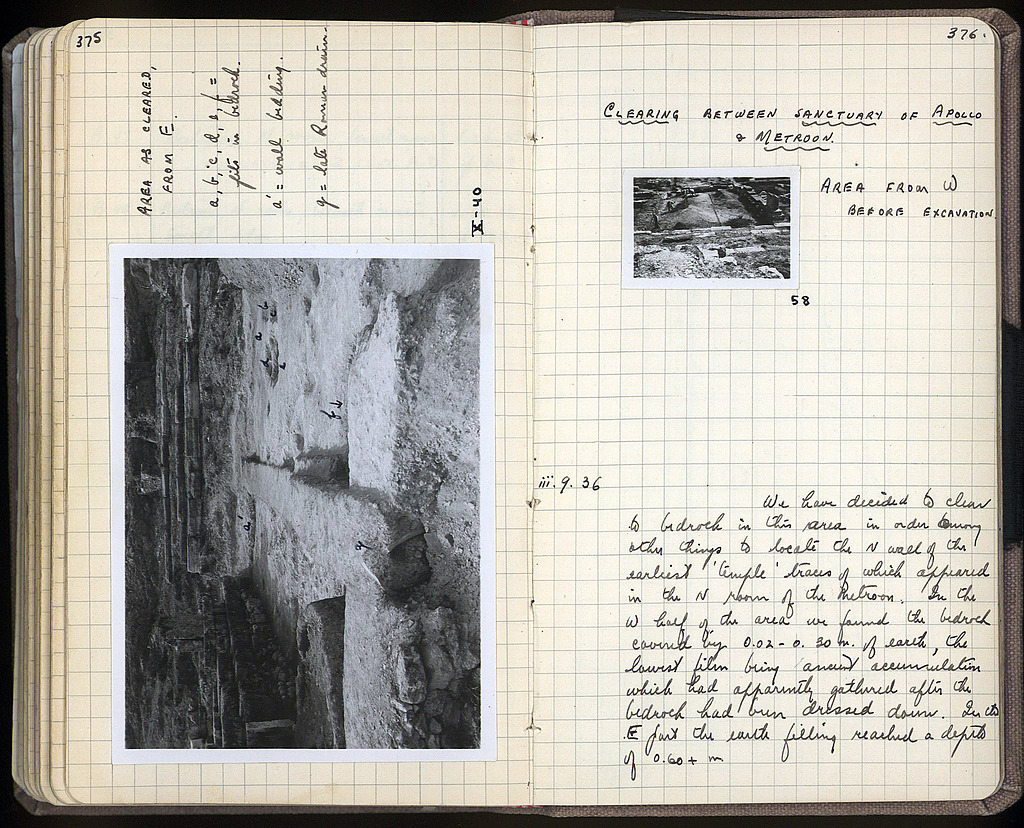 375
AREA AS CLEARED,
FROM E.
a, b, c, d, e, f =
pits in bedrock.
a' = wall bedding.
g = late Roman drain.
X-40
a
b
c
d
e
f
a'
g
376.
CLEARING BETWEEN SANCTUARY OF APOLLO
& METROON.
AREA FROM W
BEFORE EXCAVATION.
58
iii.9.36
We have decided to clear
to bedrock in this area in order among
other things to locate the N wall of the
earliest 'temple' traces of which appeared
in the N room of the Metroon. In the
W half of the area we found the bedrock
covered by 0.02 - 0.30 m. of earth, the
lowest film being ancient accumulation
which had apparently gathered after the
bedrock had been dressed down. In its
E part the earth filling reached a depth
of 0.60+ m